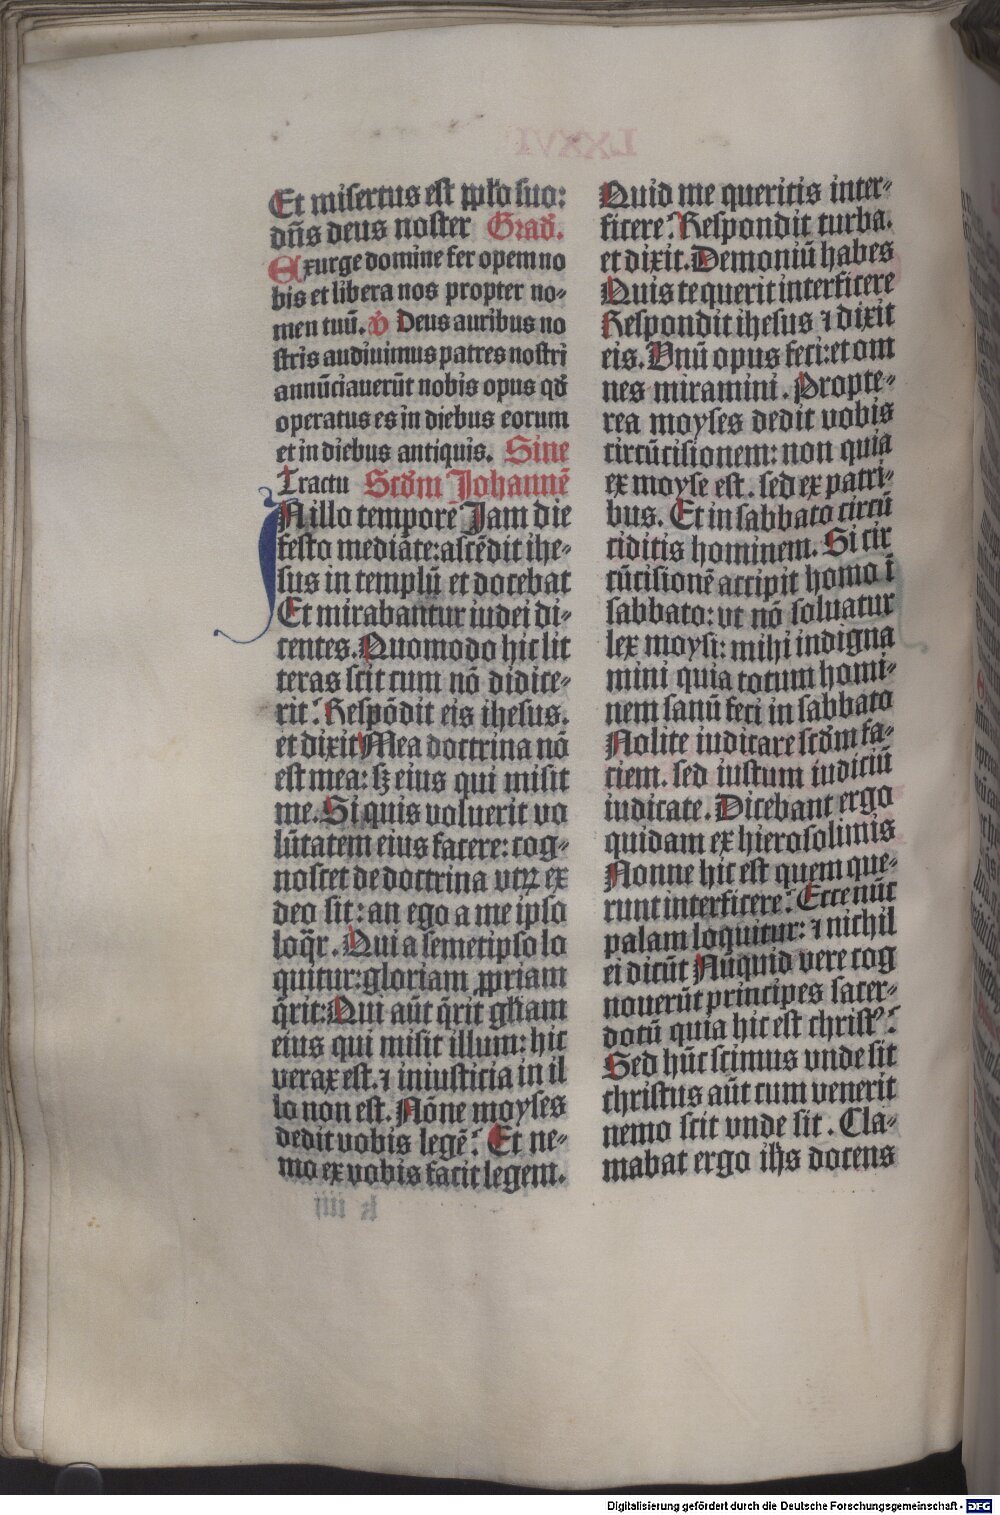 Et misertus est pplo suo:
dn̄s deus noster Grad̄.
Exurge domine fer opem no
bis et libera nos propter no-
men tuū. v̄ Deus auribus no
stris audiuimus patres nostri
annūciauerūt nobis opus qd̄
operatus es in diebus eorum
et in diebus antiquis. Sine
Tractu Scd̄m Johannē
In illo tempore Jam die
festo mediāte: ascēdit ihe-
sus in templū et docebat
Et mirabantur iudei di-
centes. Quomodo hic lit
teras scit cum nō didice-
rit? Respōdit eis ihesus.
et dixit Mea doctrina nō
est mea: sꝫ eius qui misit
me. Si quis voluerit vo
lūtatem eius facere: cog-
noscet de doctrina vtꝝ ex
deo sit: an ego a me ipso
loq̄r. Qui a semetipso lo
quitur: gloriam ꝓpriam
q̄rit: Qui aūt q̄rit gl̄iam
eius qui misit illum: hic
verax est. ⁊ iniusticia in il
lo non est. Nōne moyses
dedit vobis legē? Et ne-
mo ex vobis facit legem.
Quid me queritis inter-
ficere? Respondit turba.
et dixit. Demoniū habes
Quis te querit interficere
Respondit ihesus ⁊ dixit
eis. Vnū opus feci: et om
nes miramini. Propte-
rea moyses dedit vobis
circūcisionem: non quia
ex moyse est. sed ex patri-
bus. Et in sabbato circū
ciditis hominem. Si cir
cūcisionē accipit homo ī
sabbato: vt nō soluatur
lex moysi: mihi indigna
mini quia totum homi-
nem sanū feci in sabbato
Nolite iudicare scd̄m fa-
ciem. sed iustum iudiciū
iudicate. Dicebant ergo
quidam ex hierosolimis
Nonne hic est quem que-
runt interficere? Ecce nūc
palam loquitur: ⁊ nichil
ei dicūt Nūquid vere cog
nouerūt principes sacer-
dotū quia hic est christꝰ?
Sed hūc scimus vnde sit
christus aūt cum venerit
nemo scit vnde sit. Cla-
mabat ergo ih̄s docens
Digitalisierung gefördert durch die Deutsche Forschungsgemeinschaft - DFG